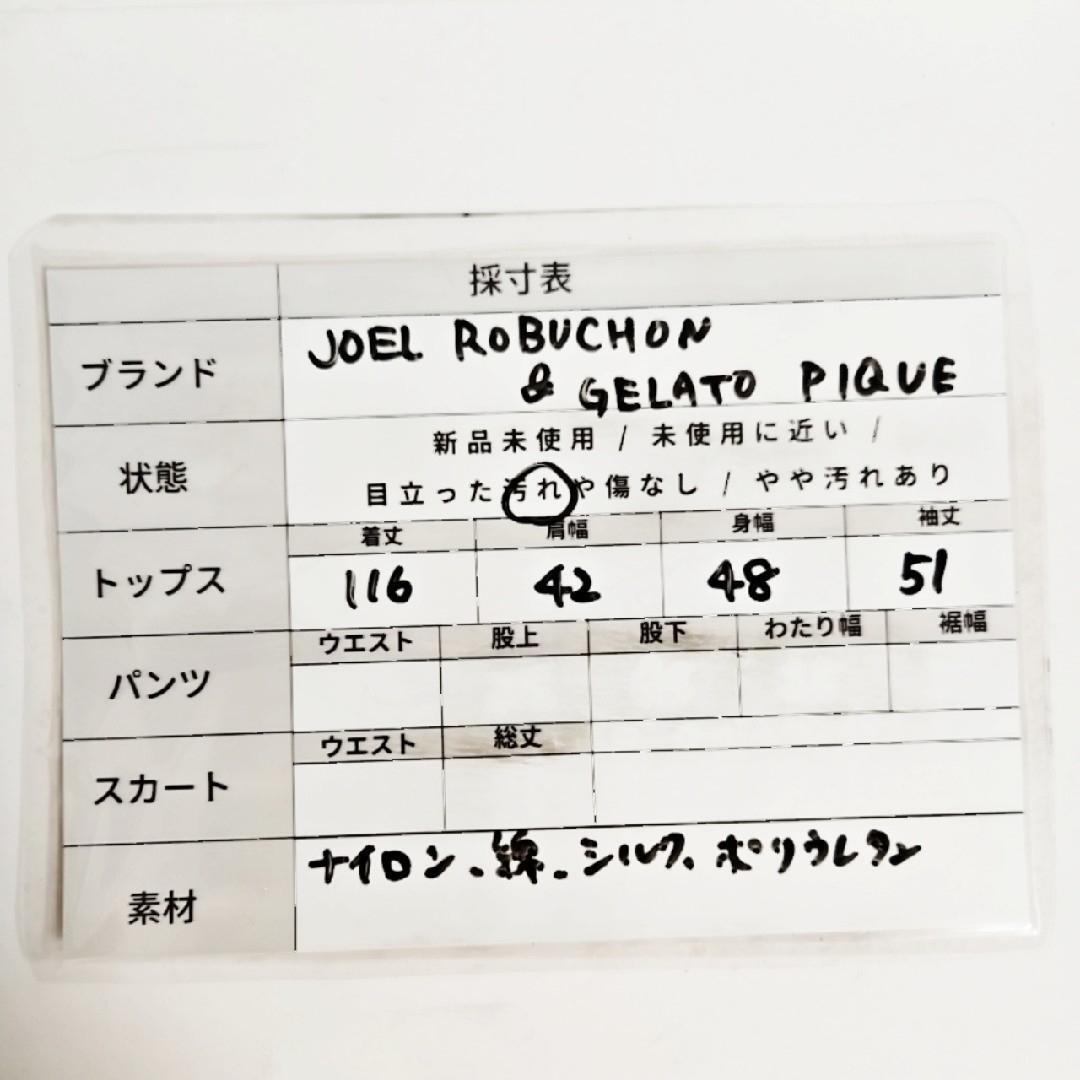 採寸表
ブランド
JOEL ROBUCHON
& GELATO PIQUE
状態
新品未使用 / 未使用に近い /
目立った汚れや傷なし / やや汚れあり
着丈 肩幅 身幅 袖丈
トップス 116 42 48 51
ウエスト 股上 股下 わたり幅 裾幅
パンツ
ウエスト 総丈
スカート
ナイロン、綿、シルク、ポリウレタン
素材